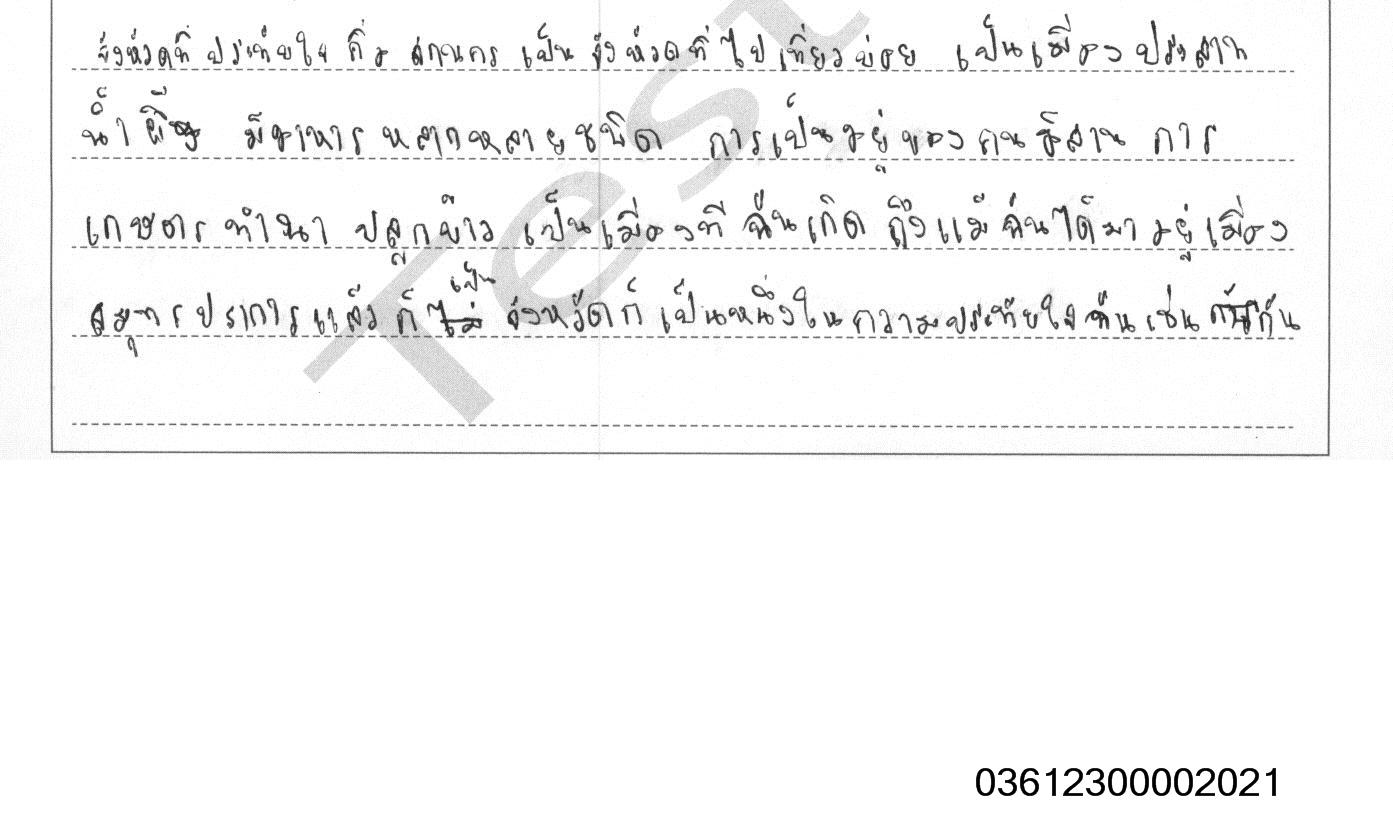 จังหวัดที่ ประทับใจ คือ สกนคร เป็น จังหวัดที่ ไปเที่ยวบ่อย เป็นเมืองปราสาท
น้ำผึ้ง มีอาหาร หลากหลายชนิด การเป็นอยู่ของคนอีสาน การ
เกษตร ทำนา ปลูกข้าว เป็นเมืองที่ ฉันเกิด ถึงแม้ ฉันได้มา อยู่เมือง
สมุทรปราการแล้ว ก็เป็น จังหวัดที่ เป็นหนึ่งในความประทับใจ ฉัน เช่น กัน
Test
03612300002021